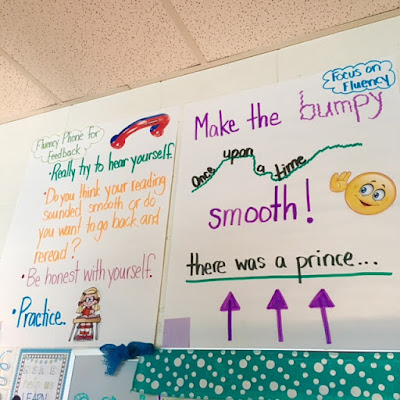 Fluency Phone for
Feedback
• Really try to hear yourself.
• Do you think your reading
sounded smooth or do
you want to go back and
reread?
• Be honest with yourself.
• Practice.
Focus on
Fluency
Make the bumpy
Once upon a time
smooth!
there was a prince...